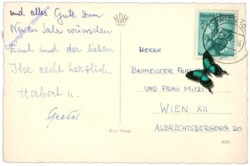 und alles Gute zum
Neuen Jahr wünschen
Euch und der lieben
Ilse recht herzlich
Herbert u.
Grete
HERRN
BAUMEISTER
UND FRAU MITZI
WIEN XII
ALBRECHTSBERGERG. 20